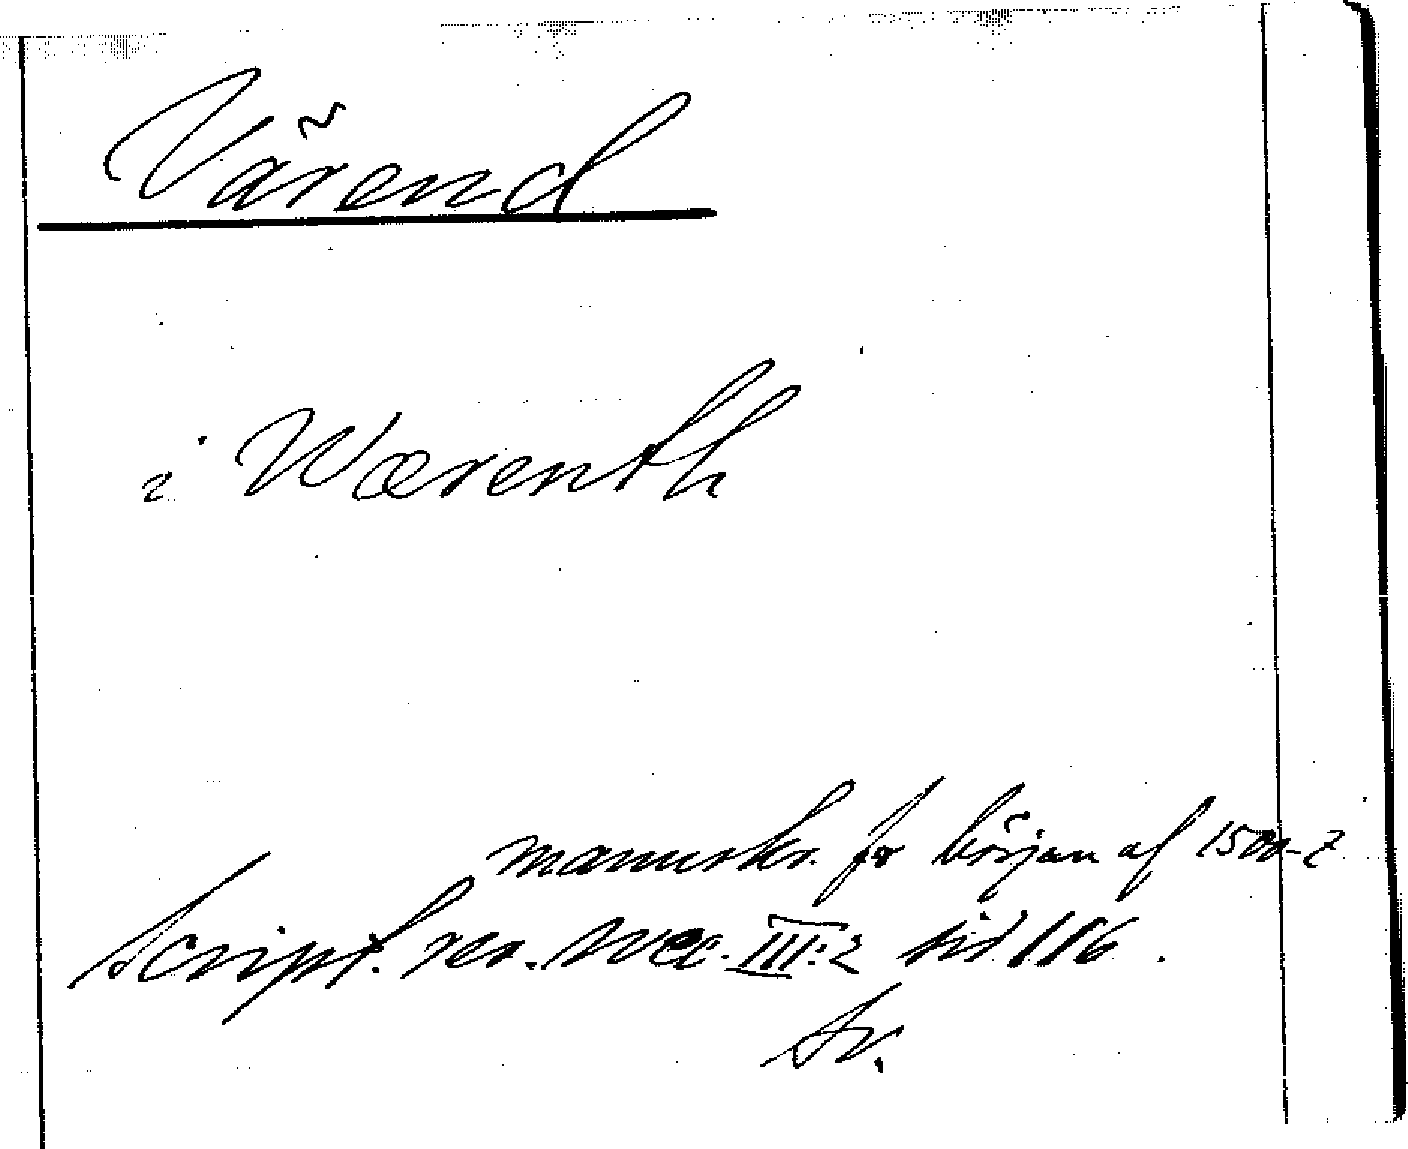 Värend
i Wærenth
manuskr. fr början af 1500-t
Script. rer. svec. III:2 sid 116.
tr.